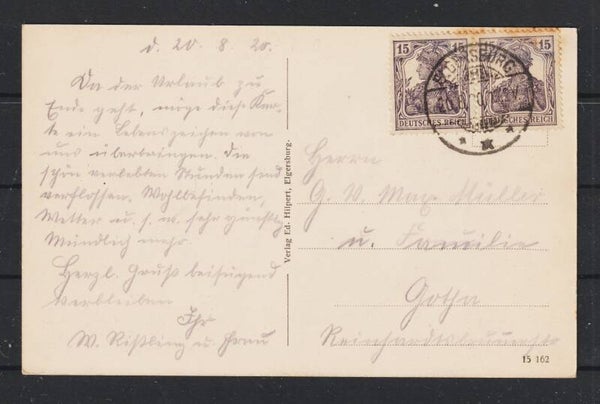 d. 20. 8. 20.
Da der Urlaub zu
Ende geht, möge diese Kar-
te ein Lebenszeichen von
uns überbringen. Die
schön verlebten Stunden sind
verflossen. Wohlbefinden,
Wetter u. s. w. sehr günstig.
Mündlich mehr.
Herzl. Gruß beifügend
verbleiben
Ihr
W. Rißling u. Frau
Verlag Ed. Hilpert, Elgersburg.
15 15
DEUTSCHES REICH
15
DEUTSCHES REICH
ELGERSBURG
Herrn
G. V. Max Müller
u. Familie
Gotha
15 162